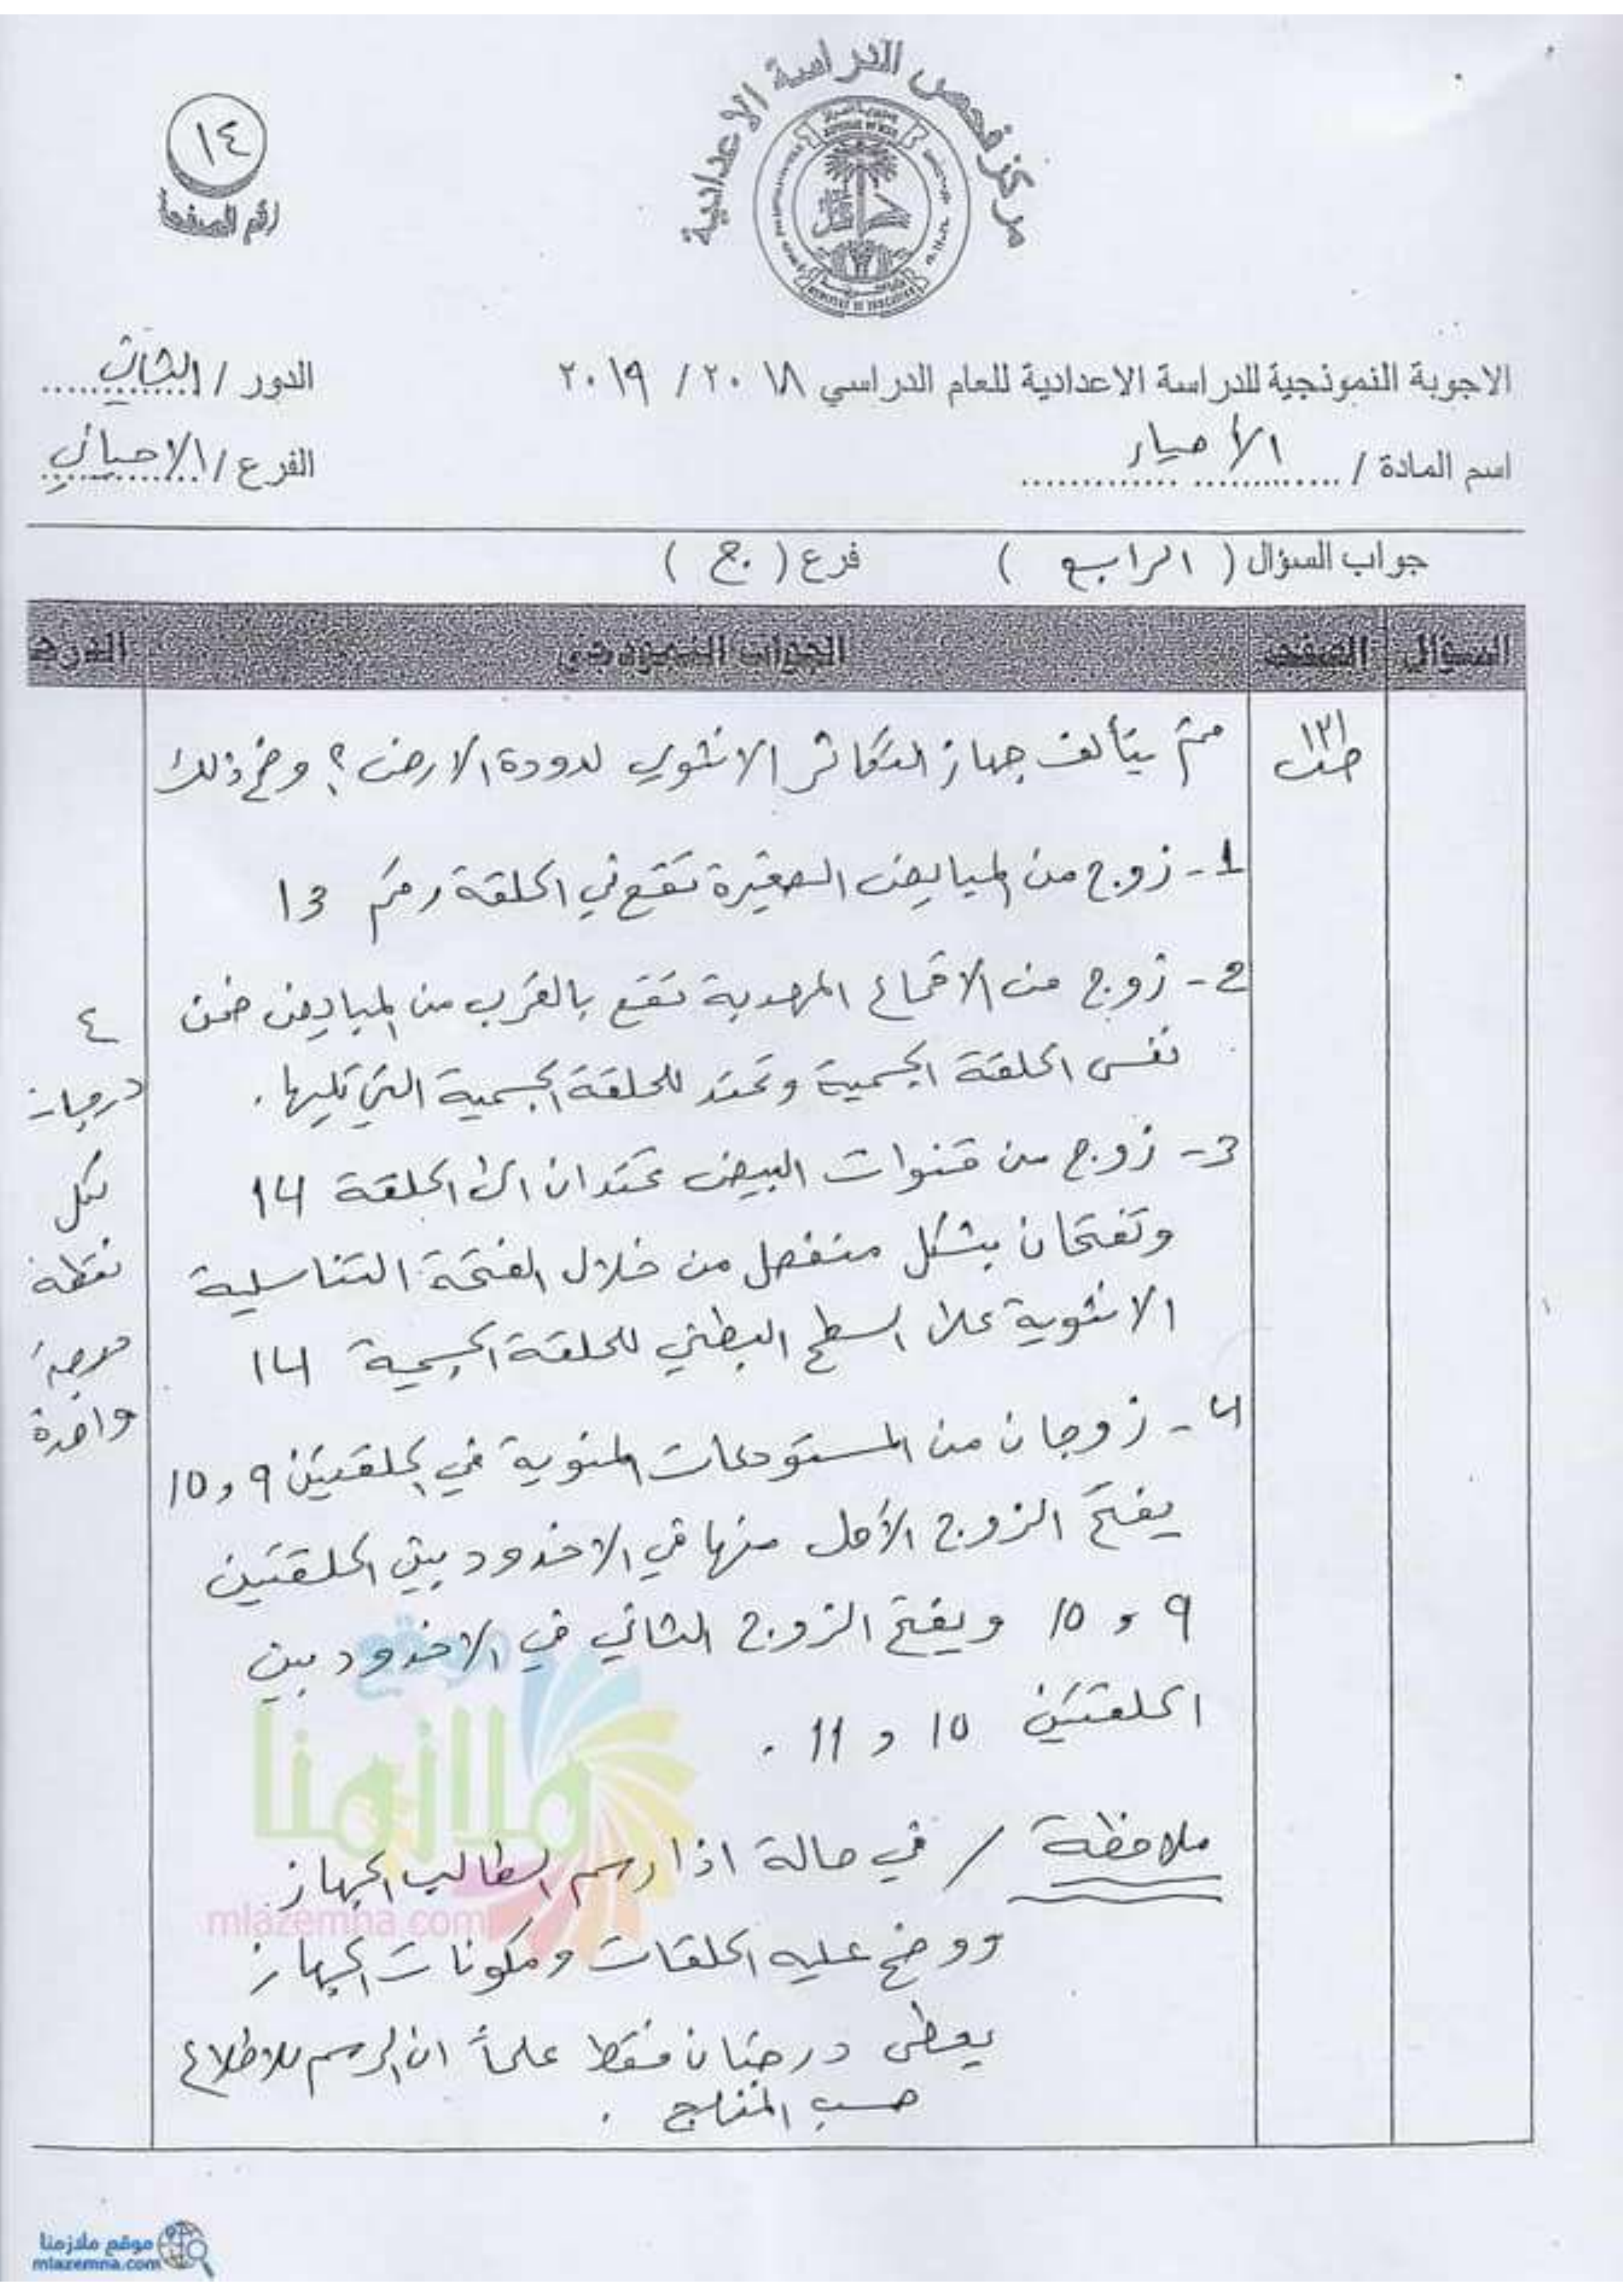 مركز فحص الدراسة الاعدادية
١٤
رقم الصفحة
الاجوبة النموذجية للدراسة الاعدادية للعام الدراسي ٢٠١٨ / ٢٠١٩
الدور / الثاني
اسم المادة / الأحياء
الفرع / الاحيائي
جواب السؤال ( الرابع ) فرع ( ج )
السؤال الصفحة الجواب النموذجي الدرجة
١٣١
مم يتألف جهاز التكاثر الانثوي لدودة الارض؟ وضح ذلك
1- زوج من المبايض الصغيرة تقع في الحلقة رقم 13
2- زوج من الاقماع المهدبة تقع بالقرب من المبايض ضمن
نفس الحلقة الجسمية وتمتد للحلقة الجسمية التي تليها.
3- زوج من قنوات البيض تمتدان الى الحلقة 14
وتفتحان بشكل منفصل من خلال الفتحة التناسلية
الانثوية على السطح البطني للحلقة الجسمية 14
4- زوجان من المستودعات المنوية في الحلقتين 9 و 10
يفتح الزوج الأول منها في الاخدود بين الحلقتين
9 و 10 ويفتح الزوج الثاني في الاخدود بين
الحلقتين 10 و 11 .
ملاحظة / في حالة اذا رسم الطالب الجهاز
ووضح عليه الحلقات ومكونات الجهاز
يعطى درجتان فقط علماً ان الرسم للاطلاع
حسب المنهاج .
٤
درجات
لكل
نقطة
درجة
واحدة
موقع
ملازمنا
mlazemna.com
موقع ملازمنا
mlazemna.com